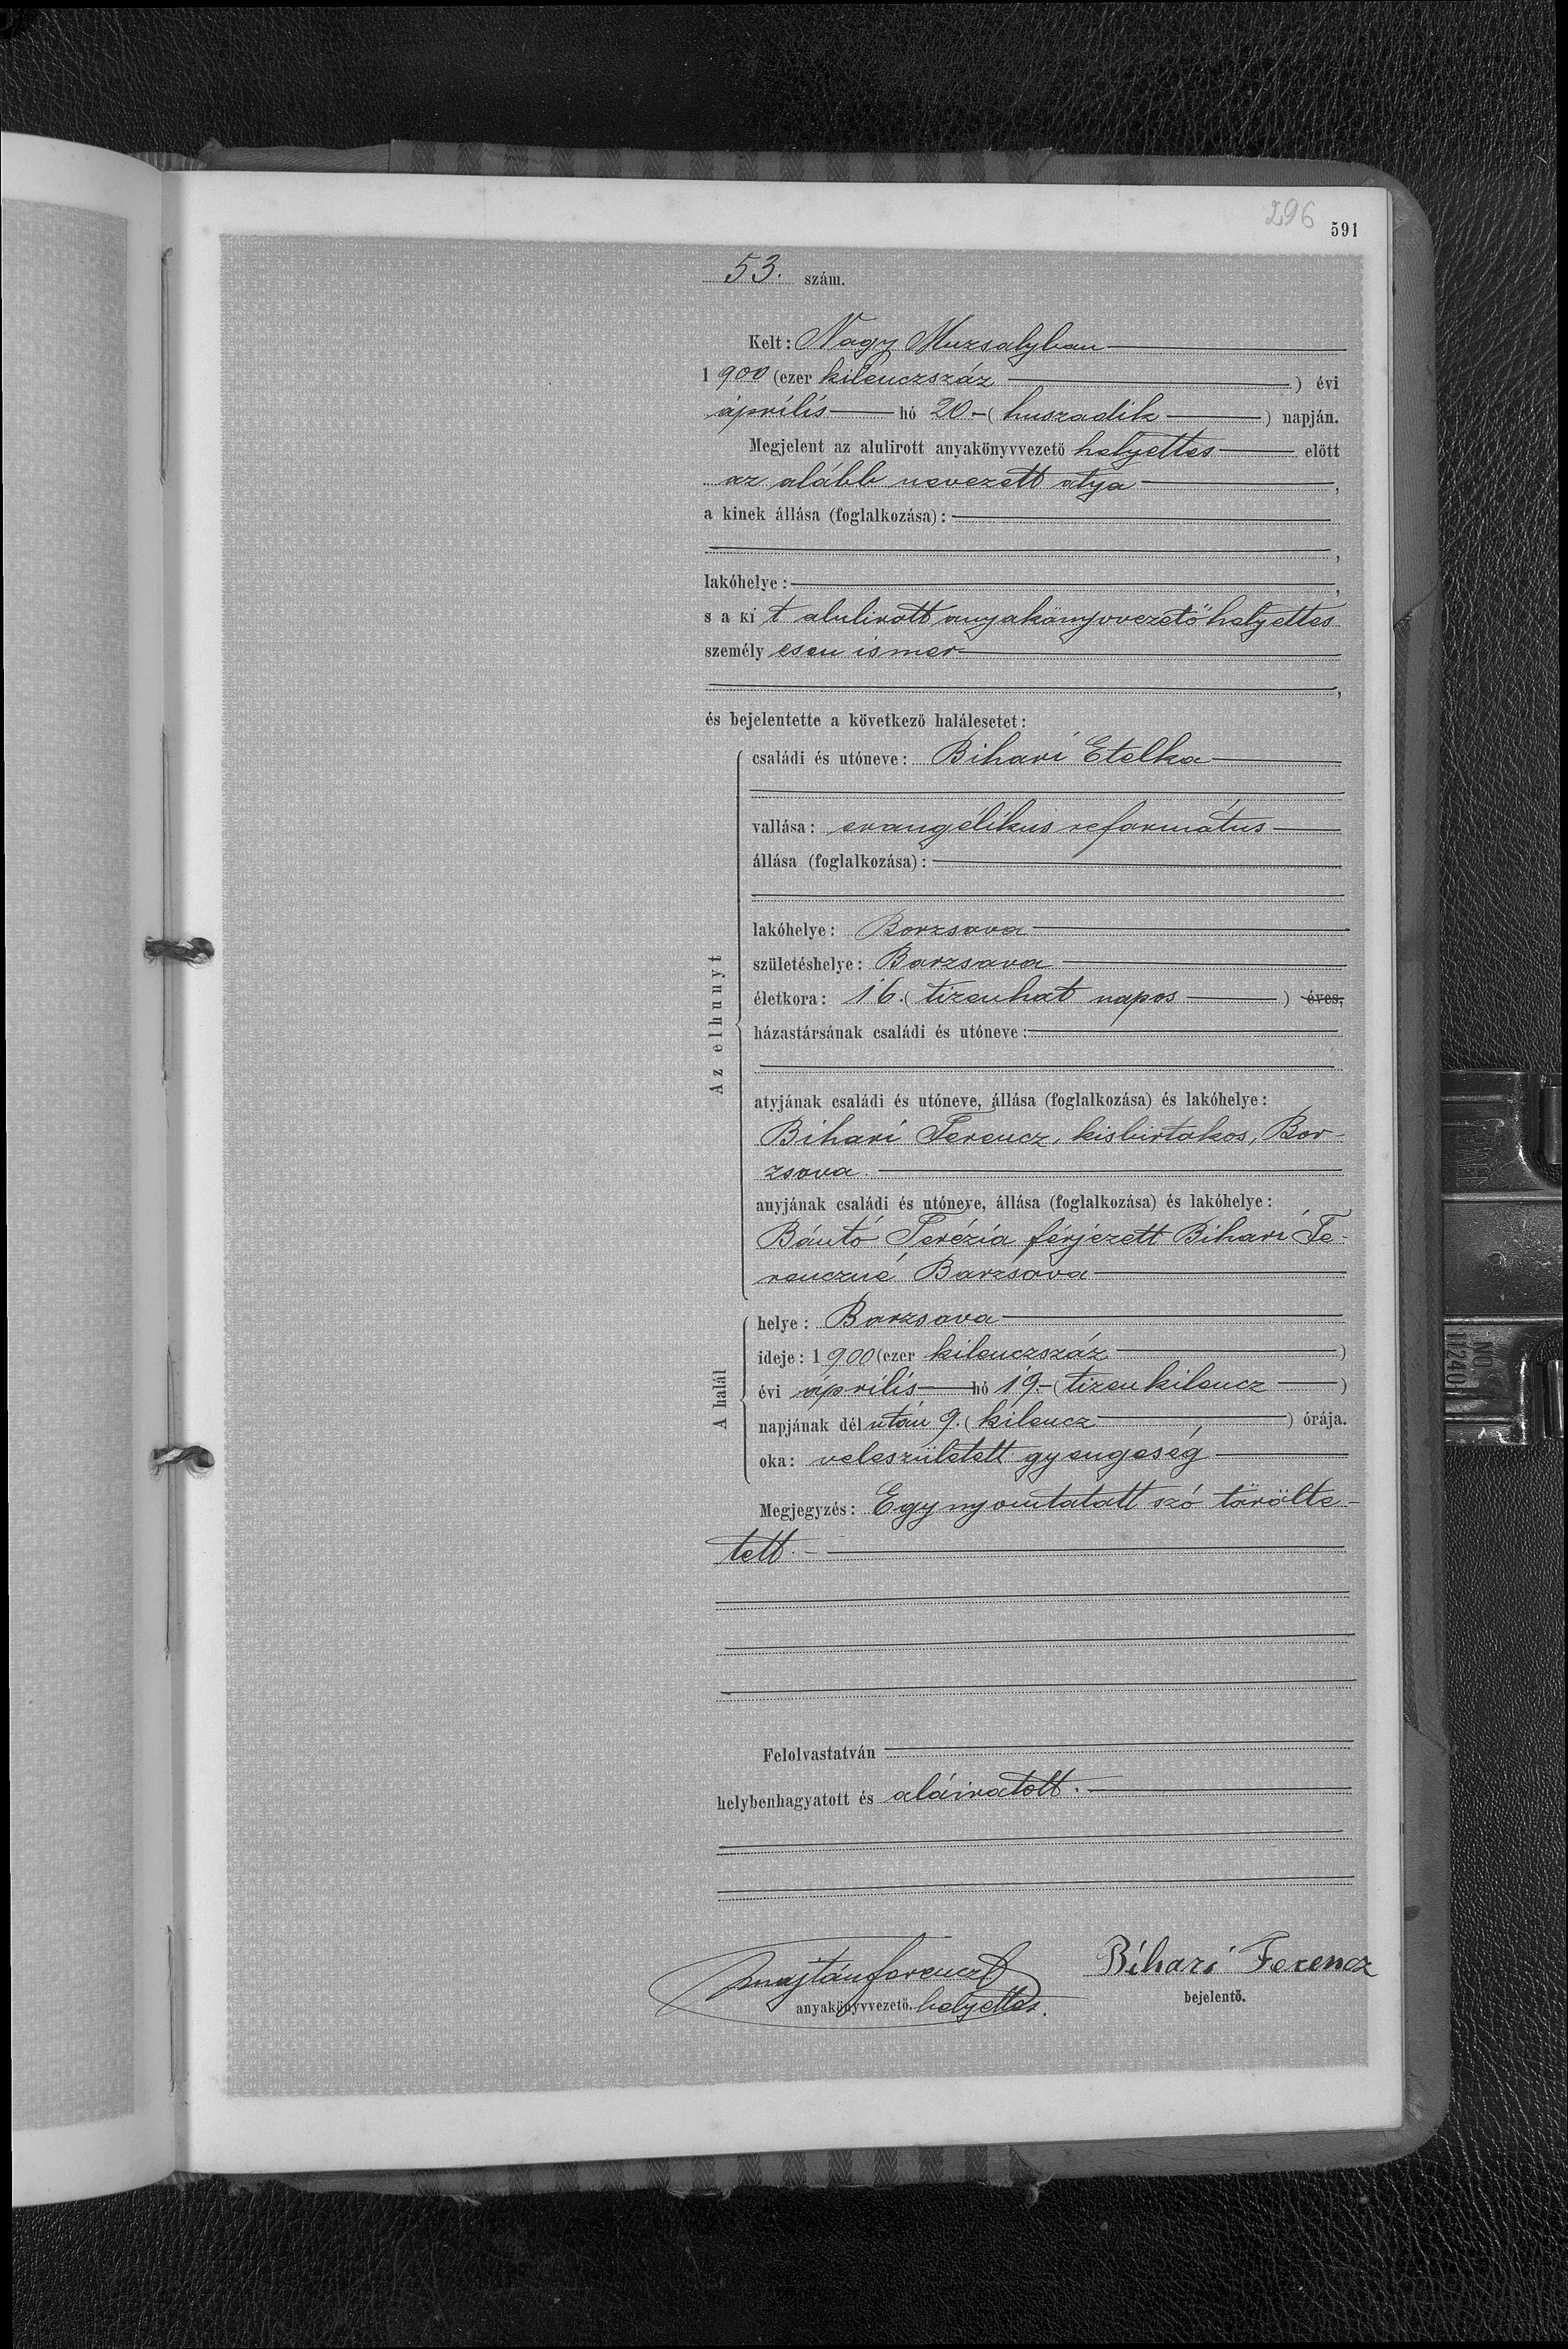 296 591
53. szám.
Kelt: Nagy Muzsalyban
1900 (ezer kilenczszáz) évi
április hó 20-(huszadik) napján.
Megjelent az alulirott anyakönyvvezető helyettes előtt
az alább nevezett atya,
a kinek állása (foglalkozása):
,
lakóhelye:,
s a kit alulirott anyakönyvvezető helyettes
személyesen ismer
,
és bejelentette a következő halálesetet:
Az elhunyt
családi és utóneve: Bihari Etelka
vallása: evangélikus református
állása (foglalkozása):
lakóhelye: Borzsova
születéshelye: Borzsova
életkora: 16. (tizenhat napos) éves,
házastársának családi és utóneve:
atyjának családi és utóneve, állása (foglalkozása) és lakóhelye:
Bihari Ferencz, kisbirtokos, Bor-
zsova.
anyjának családi és utóneve, állása (foglalkozása) és lakóhelye:
Bántó Terézia férjezett Bihari Fe-
renczné Borzsova
A halál
helye: Borzsova
ideje: 1900 (ezer kilenczszáz)
évi április hó 19.-(tizenkilencz)
napjának délután 9. (kilencz) órája.
oka: veleszületett gyengeség
Megjegyzés: Egy nyomtatott szó törölte-
tett.-
Felolvastatván
helybenhagyatott és aláiratott.
Majtán Ferencz Bihari Ferencz
anyakönyvvezető. helyettes. bejelentő.
NO.
11240